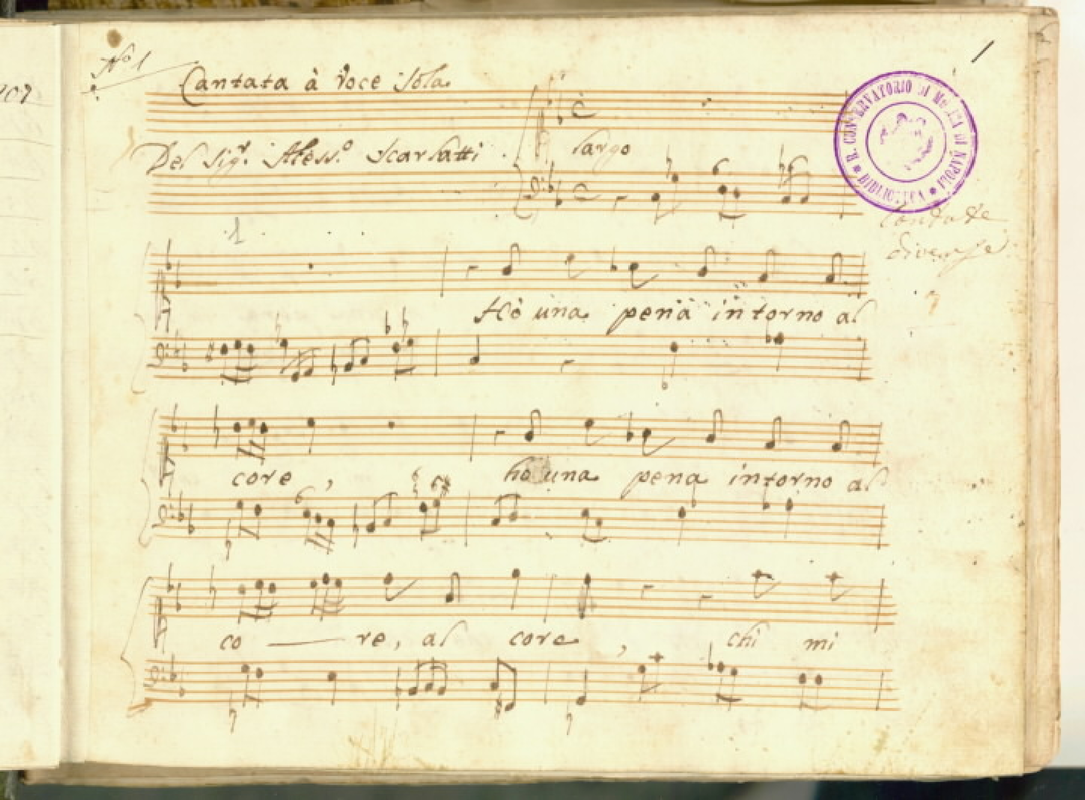 1
No 1
Cantata à Voce sola
Del Sigr. Aless.o Scarlatti
Largo
R. CONSERVATORIO DI MUSICA DI NAPOLI
BIBLIOTECA
Cantate
diverse
1
Hò una pena intorno al
core, ho una pena intorno al
co re, al core, chi mi